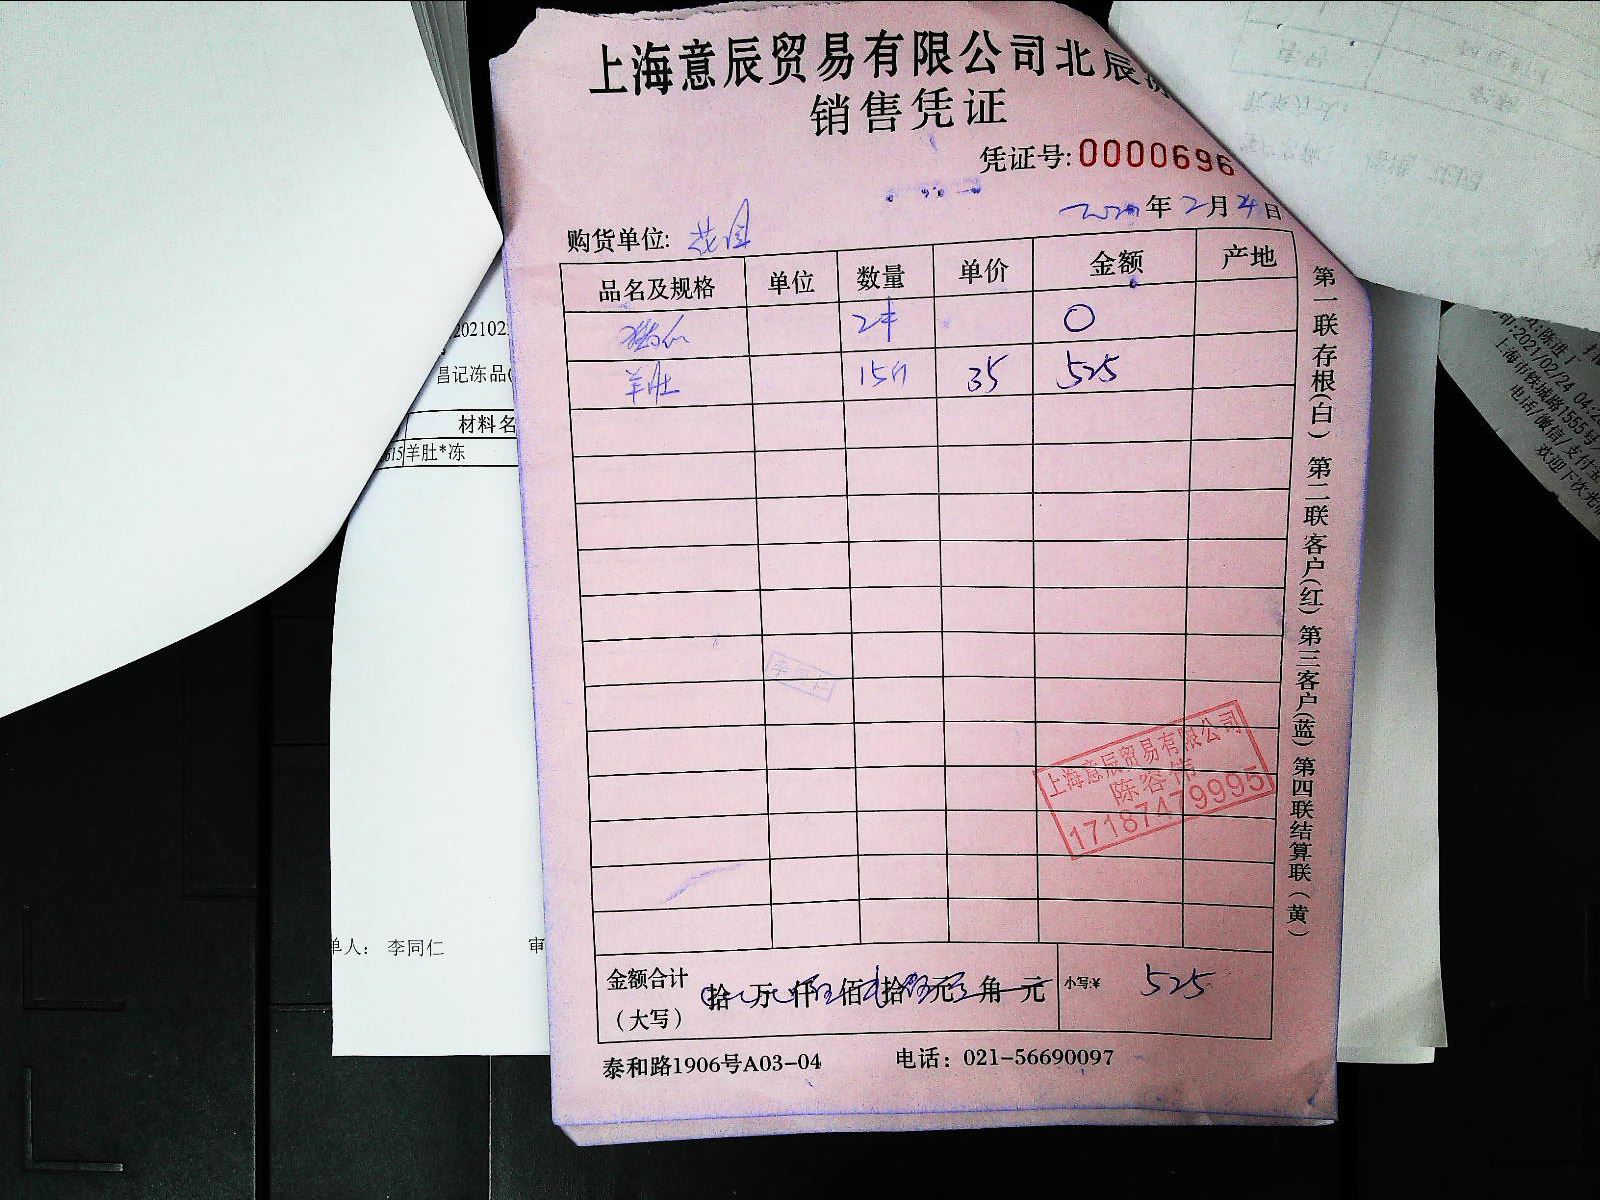 上海意辰贸易有限公司北辰
销售凭证
凭证号:0000696
年2月24日
购货单位:
品名及规格 单位 数量 单价 金额 产地
2件 0
羊肚 15斤 35 525
金额合计（大写） 拾 万 仟 佰 拾 元 角 元 小写:¥ 525
泰和路1906号A03-04 电话：021-56690097
第一联存根(白) 第二联客户(红) 第三客户(蓝) 第四联结算联(黄)
上海意辰贸易有限公司
陈容伟
17187479995
202102
昌记冻品(
材料名
615 羊肚*冻
单人： 李同仁
审
:陈进丁
:2021/02/24 04:2
上海市铁城路1555号
电话/微信/支付宝
欢迎下次光临